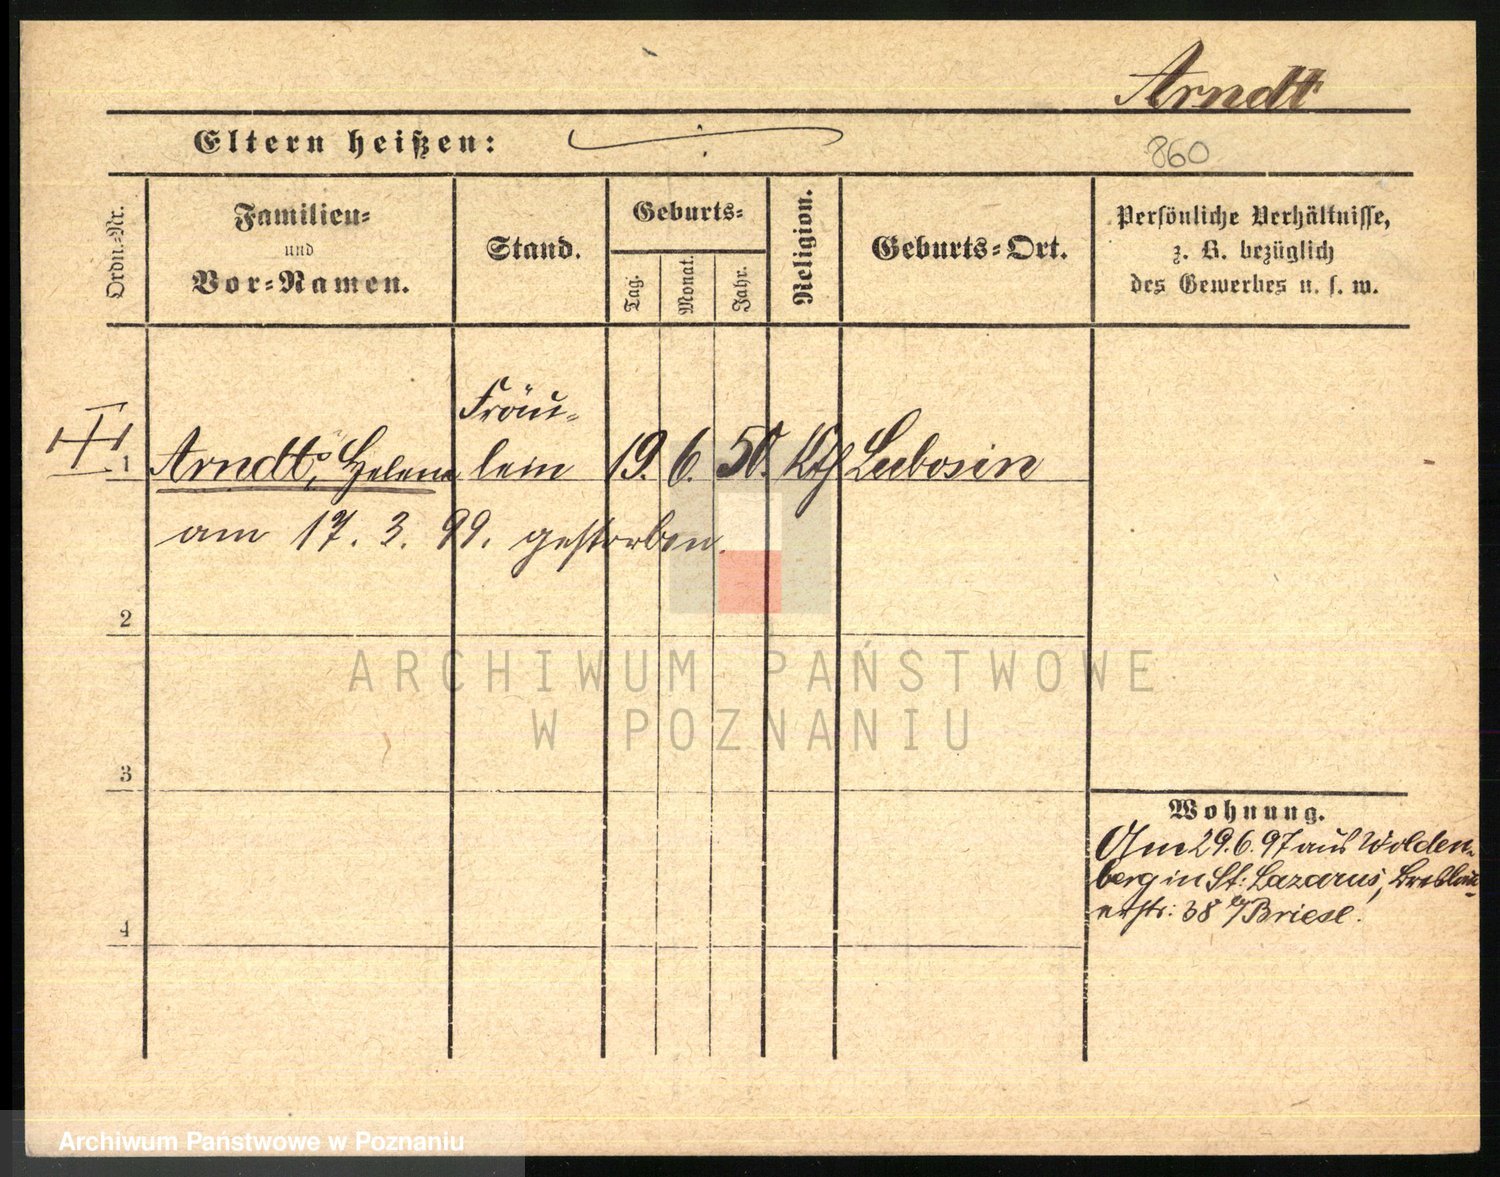 Arndt
Eltern heißen:
860
Ordn.-Nr.
Familien-
und
Vor-Namen.
Stand.
Geburts-
Tag.
Monat.
Jahr.
Religion.
Geburts-Ort.
Persönliche Verhältnisse,
z. B. bezüglich
des Gewerbes u. s. w.
Fräu-
1 Arndt, Helene lein 19. 6. 50. Kth Lubosin
am 17. 3. 99. gestorben.
2
ARCHIWUM PAŃSTWOWE
W POZNANIU
3
Wohnung.
Am 29.6.97 aus Wolden-
berg in St: Lazarus, Breslau-
erstr: 38 b/Briese.
4
Archiwum Państwowe w Poznaniu